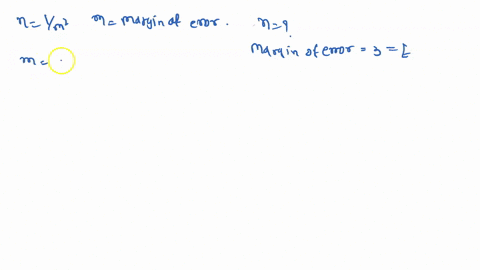 n = 1/m² m = margin of error. n = ?
Margin of error = 3 = E
m = .